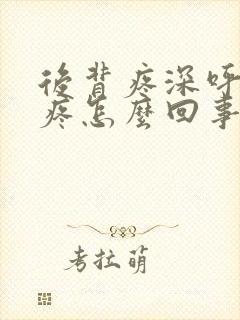 後背疼深呼
疼怎麼回事
考拉萌